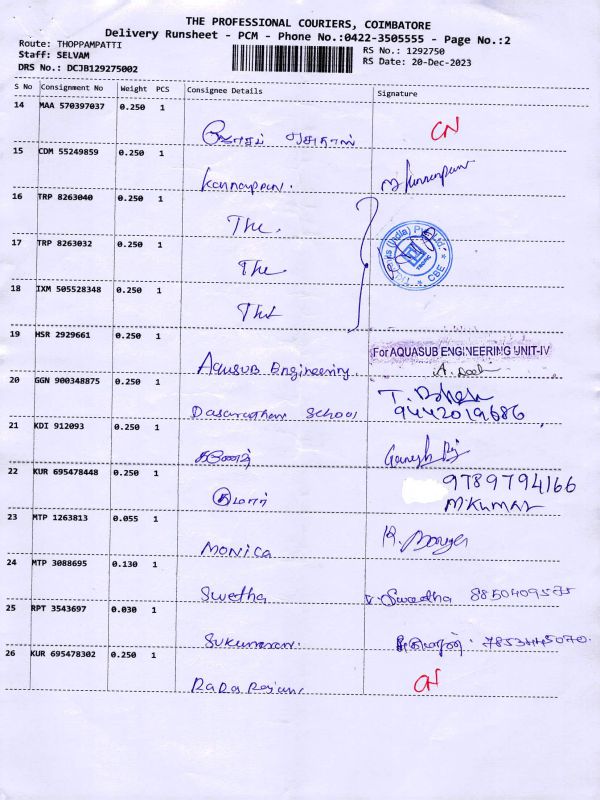 THE PROFESSIONAL COURIERS, COIMBATORE
Delivery Runsheet - PCM - Phone No.:0422-3505555 - Page No.:2
Route: THOPPAMPATTI
Staff: SELVAM
DRS No.: DCJB129275002
RS No.: 1292750
RS Date: 20-Dec-2023
S No Consignment No Weight PCS Consignee Details Signature
14 MAA 570397037 0.250 1
CN
15 CDM 55249859 0.250 1
Kannappan.
16 TRP 8263040 0.250 1
The.
17 TRP 8263032 0.250 1
The
18 IXM 505528348 0.250 1
The
19 HSR 2929661 0.250 1
AquSUB Engineering
For AQUASUB ENGINEERING UNIT-IV
20 GGN 900348875 0.250 1
School
9442019686
21 KDI 912093 0.250 1
கணேஷ்
Ganesh
22 KUR 695478448 0.250 1
குமார்
9789794166
M.KUMAR
23 MTP 1263813 0.055 1
MONICA
24 MTP 3088695 0.130 1
Swetha
Swetha
25 RPT 3543697 0.030 1
Sukumaran.
26 KUR 695478302 0.250 1
CN